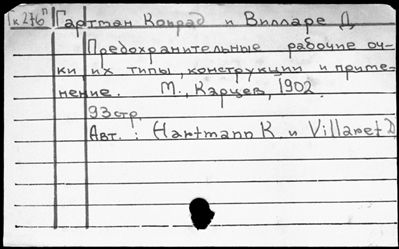 1к276п Гартман Конрад и Вилларе Д.
Предохранительные рабочие оч-
ки их типы, конструкции и приме-
нение. М., Карцев, 1902.
93 стр.
Авт.: Hartmann K. и Villaret D